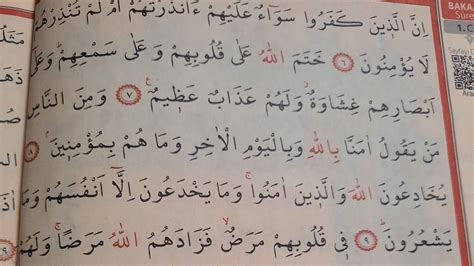 اِنَّ الَّذ۪ينَ كَفَرُوا سَوَٓاءٌ عَلَيْهِمْ ءَاَنْذَرْتَهُمْ اَمْ لَمْ تُنْذِرْهُمْ
لَا يُؤْمِنُونَ ﴿٦﴾ خَتَمَ اللّٰهُ عَلٰى قُلُوبِهِمْ وَعَلٰى سَمْعِهِمْۜ وَعَلٰٓى
اَبْصَارِهِمْ غِشَاوَةٌۘ وَلَهُمْ عَذَابٌ عَظ۪يمٌ۟ ﴿٧﴾ وَمِنَ النَّاسِ
مَنْ يَقُولُ اٰمَنَّا بِاللّٰهِ وَبِالْيَوْمِ الْاٰخِرِ وَمَا هُمْ بِمُؤْمِن۪ينَۢ ﴿٨﴾
يُخَادِعُونَ اللّٰهَ وَالَّذ۪ينَ اٰمَنُواۚ وَمَا يَخْدَعُونَ اِلَّٓا اَنْفُسَهُمْ وَمَا
يَشْعُرُونَۜ ﴿٩﴾ ف۪ي قُلُوبِهِمْ مَرَضٌۙ فَزَادَهُمُ اللّٰهُ مَرَضًاۚ وَلَهُمْ
BAKA
1. C